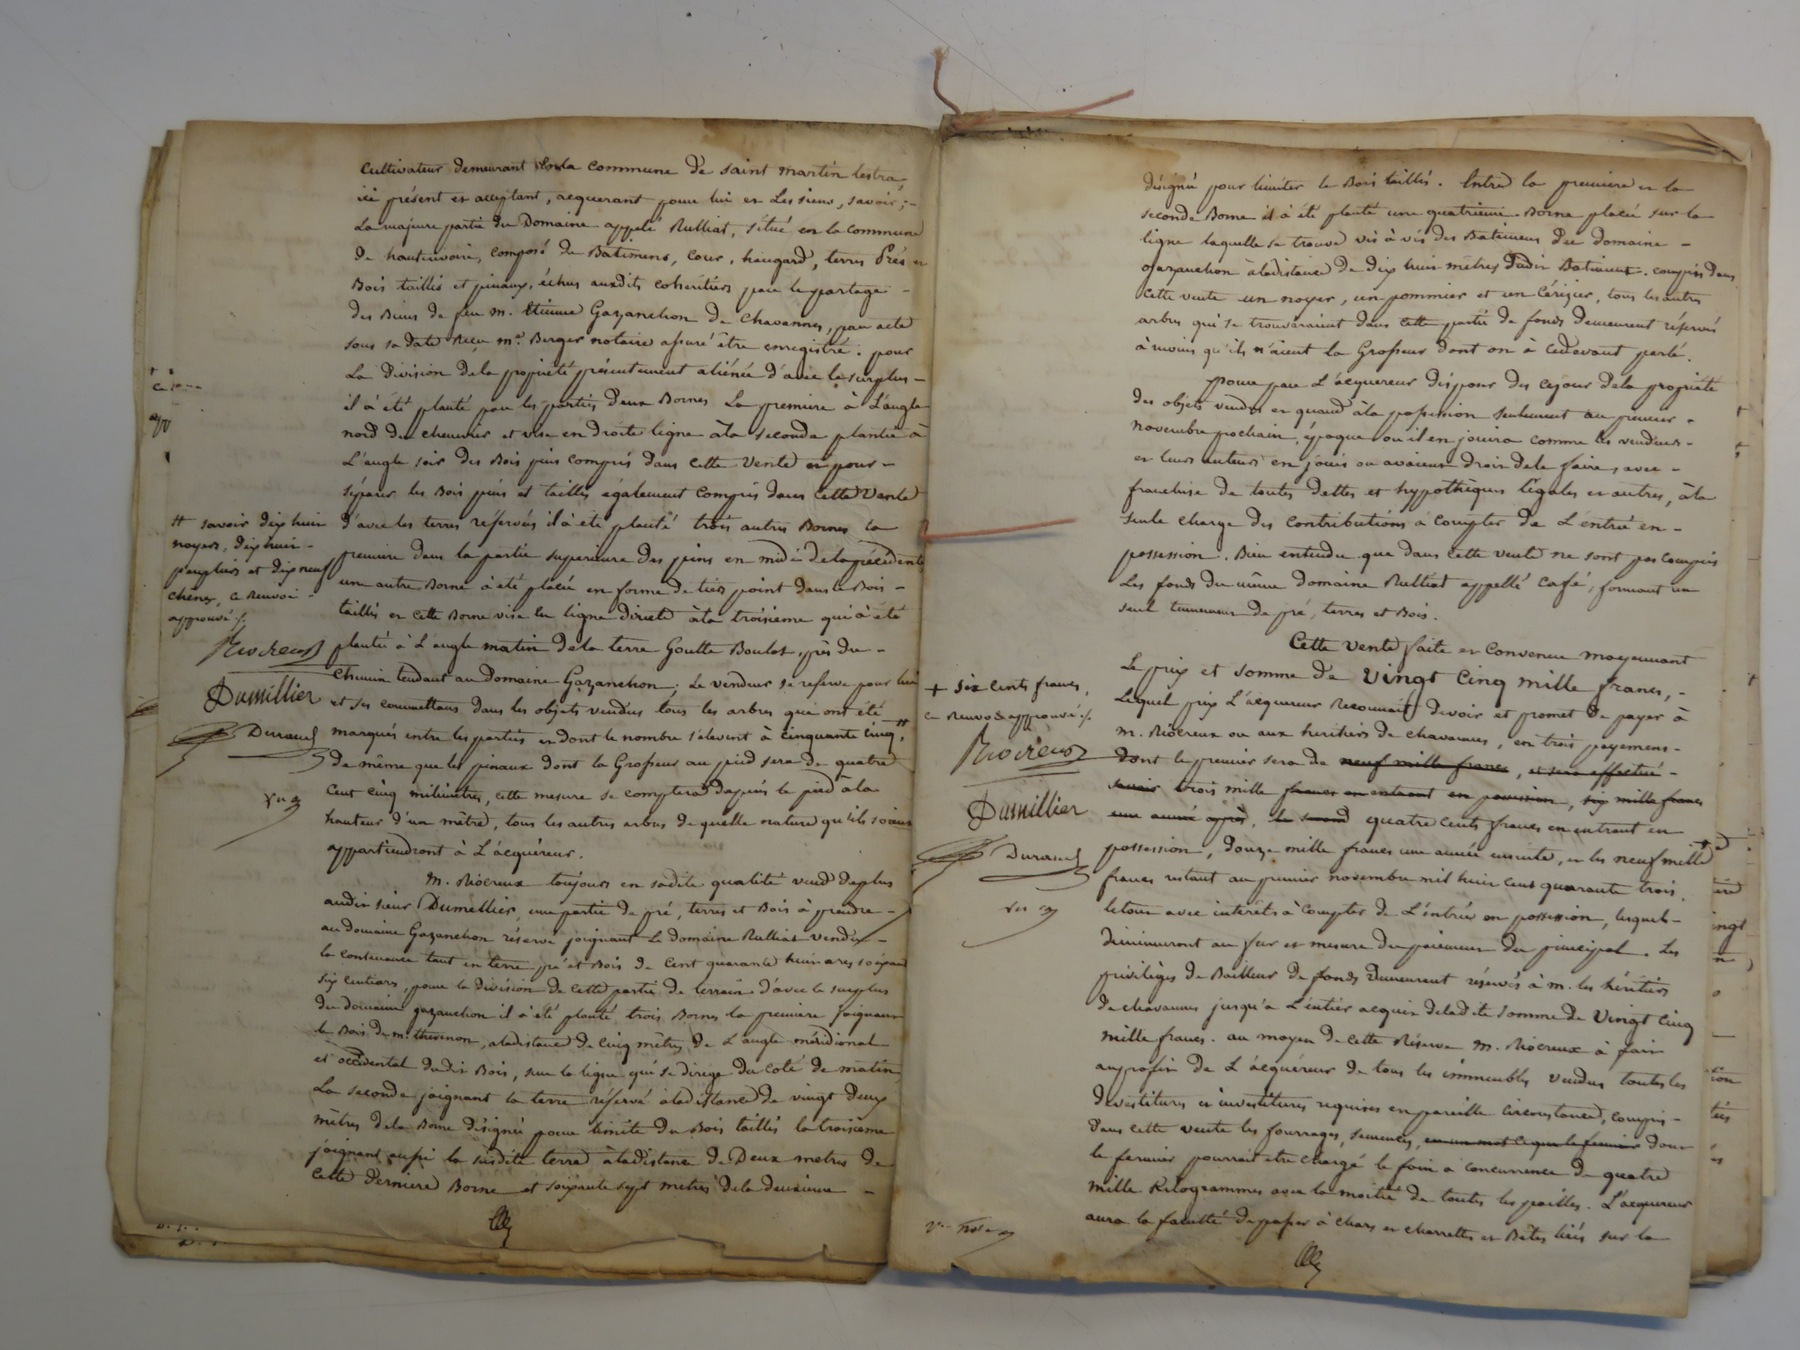 cultivateur demeurant en la commune de saint martin lestra,
ici présent et acceptant, acquerant pour lui et Les siens, savoir; -
La majeure partie du Domaine appelé Rulliat, situé en la commune
de hauterivoire, composé de Batimens, Cour, hangard, terres Prés et
Bois taillis et pinaux, échus auxdits cohéritiers par le partage -
des Biens de feu m. Etienne Gazanchon De Chavannes, par acte
sous sa date Reçu me. Berger notaire assuré être enregistré. pour
La Division de la propriété présentement aliénée d'avec le surplus -
il à été planté par les parties Deux Bornes La premiere à L'angle
nord du chenevier et vise en droite ligne à la seconde plantée à
L'angle soir des Bois pins compris dans cette Vente et pour -
séparer les Bois pins et taillis également compris dans cette Vente
d'avec les terres réservées il à été planté trois autres Bornes la
premiere dans la partie superieure des pins en midi de la précédente
une autre Borne à été placée en forme de tiers point dans le Bois -
taillis et cette Borne vise en ligne directe à la troisieme qui à été
plantée à L'angle matin de la terre Goutte Boulat, près du -
chemin tendant au Domaine Gazanchon; Le vendeur se réserve pour lui
et ses commettans dans les objets vendus tous les arbres qui ont été
marqués entre les parties et dont le nombre s'élevent à cinquante cinq, #
de même que les pinaux dont la Grosseur au pied sera de quatre
cent cinq milimètres, cette mesure se comptera dapuis le pied à la
hauteur d'un mètre, tous les autres arbres de quelle nature qu'ils soient
appartiendront à L'acquéreur.
M. Riocreux toujours en sadite qualité vend deplus
audit sieur Dumillier, une partie de pré, terres et Bois à prendre -
au domaine Gazanchon réservé joignant le domaine Rulliat vendu -
la contenance tant en terre pré et Bois de Cent quarante huit ares soixante
six centiares, pour la division de cette partie de terrein d'avec le surplus
du domaine gazanchon il à été planté trois Bornes la premiere joignant
le Bois de m. thevenon, a la distance de cinq mètres de L'angle méridional
et occidental dudit Bois, sur la ligne qui se dirige du coté de matin,
La seconde joignant la terre réservé a la distance de vingt deux
mètres de la Borne désignée pour limite du Bois taillis la troisieme
joignant aussi la susdite terre à la distance de Deux metres de
Cette derniere Borne et soixante sept metres de la deuxieme -
# savoir dix huit
noyers, dix huit -
peupliers et dix neuf
chênes, ce renvoi -
approuvé ./.
Riocreux
Dumillier
Durand
désignée pour limiter le Bois taillis. Entre la premiere et la
seconde Borne il à été planté une quatrieme Borne placée sur la
ligne laquelle se trouve vis à vis des Batimens du domaine -
Gazanchon à la distance de dix huit mètres dudit Batiment. compris dans
cette vente un noyer, un pommier et un Cérisier, tous les autres
arbres qui se trouveraient dans cette partie de fonds demeurent réservés
à moins qu'ils n'aient la Grosseur dont on à cidevant parlé.
Pour par L'acquereur disposer dès cejour de la propriété
des objets vendus et quand à la possession seulement au premier -
novembre prochain, époque ou il en jouira comme les vendeurs -
et leurs auteurs en jouis ou avaient droit de le faire, avec -
franchise de toutes dettes et hypothèques légales et autres, à la
seule charge des contributions à compter de L'entrée en -
possession. Bien entendu que dans cette vente ne sont pas compris
Les fonds du même domaine Rulliat appellé Café, formant un
seul tenement de pré, terres et Bois.
Cette vente faite et convenue moyennant
Le prix et somme de vingt cinq mille francs, -
Lequel prix L'acquéreur Reconnait devoir et promet de payer à
m. Riocreux ou aux héritiers de chavannes, en trois payemens -
dont le premier sera de neuf mille francs, et sera effectué -
savoir trois mille francs en entrant en possession, six mille francs
une année après, le second quatre cents francs en entrant en
possession, douze mille francs une année ensuite, et les neuf mille +
francs restant au premier novembre mil huit cent quarante trois.
le tout avec intérêts à compter de L'entrée en possession, lesquels -
diminueront au fur et mesure du paiement du principal. Les
privilèges de Bailleur de fonds demeurent réservés à m. les héritiers
de chavannes jusqu'a L'entier acquit de ladite somme de vingt cinq
mille francs. au moyen de cette Réserve m. Riocreux à fait
au profit de L'acquéreur de tous les immeubles vendus toutes les
devestitures et investitures requises en pareille circonstance, compris -
dans cette vente les fourrages, semences, en un mot ce que le fermier dont
le fermier pourrait être chargé le foin a concurrence de quatre
mille Kilogrammes avec la moitié de toutes les pailles. L'acquereur
aura la faculté de passer à chars et charrettes et Bêtes liées sur la
+ six cents francs,
ce renvoi approuvé ./.
Riocreux
Dumillier
Durand